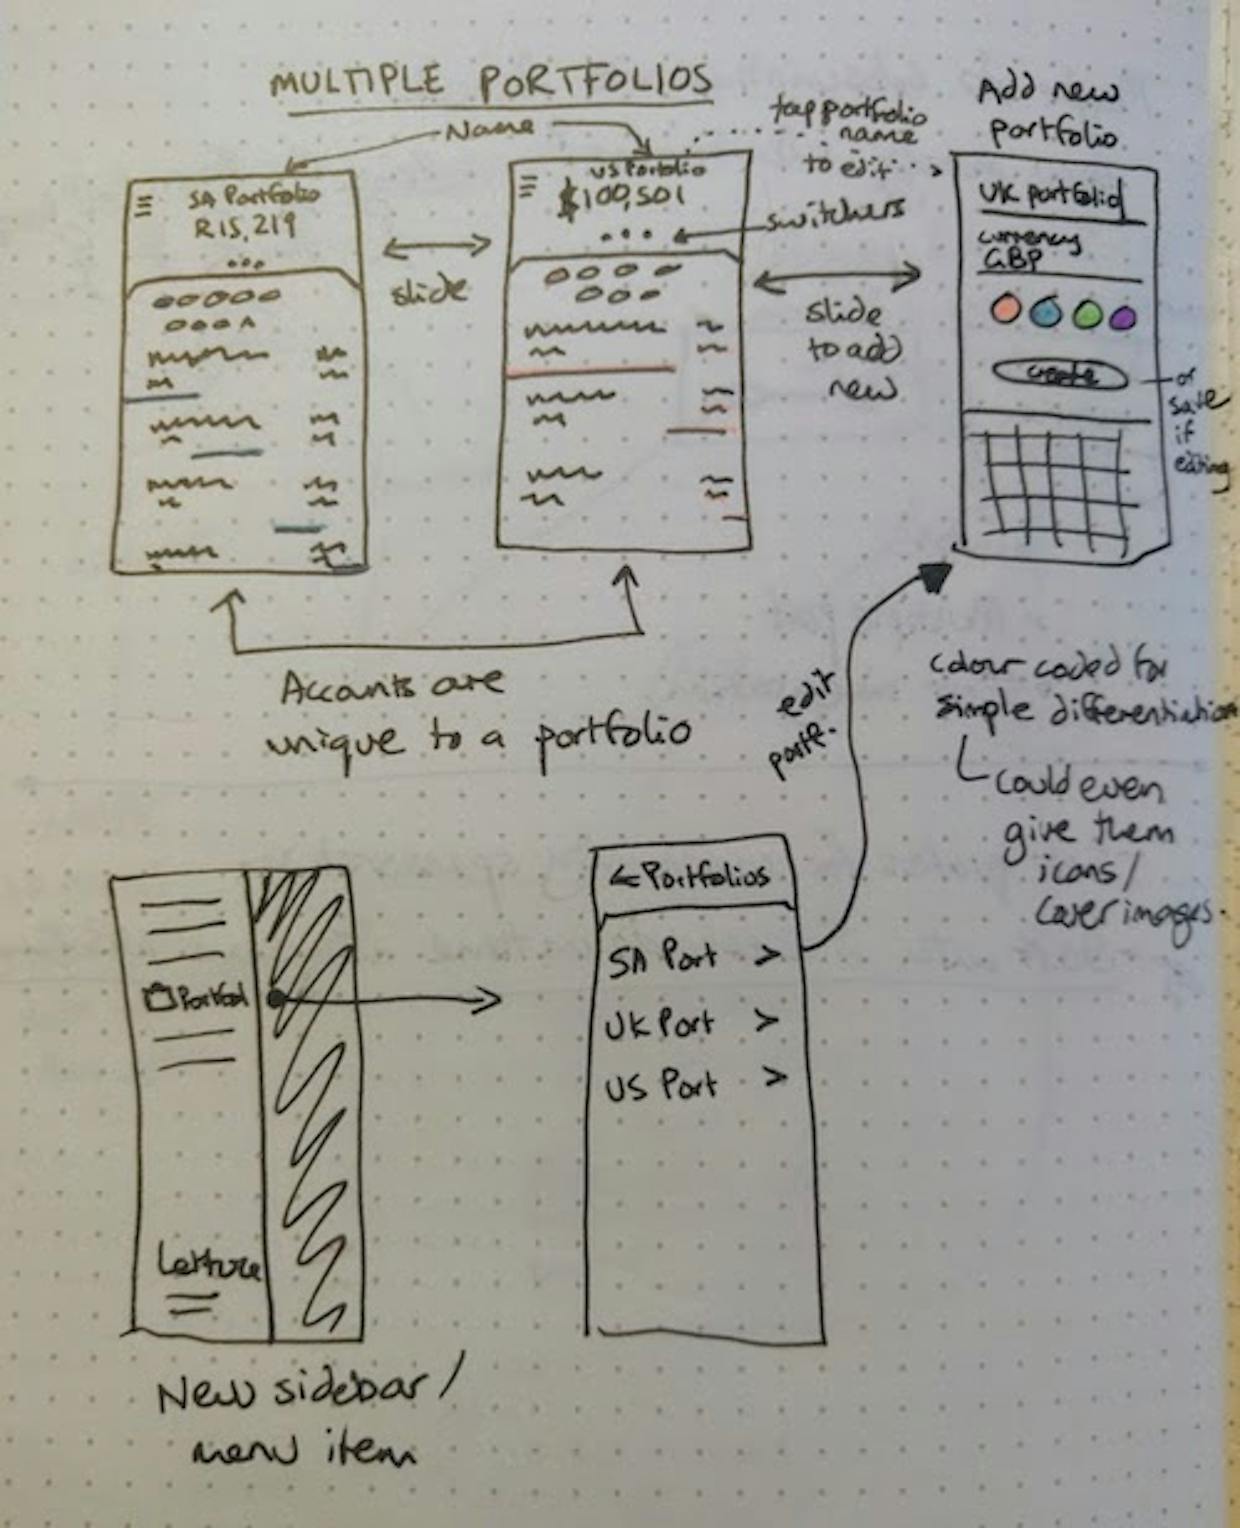 MULTIPLE PORTFOLIOS
Name
SA Portfolio
R15,219
slide
US Portfolio
$100,501
switchers
tap portfolio
name
to edit
slide
to add
new
Add new
portfolio
UK portfolio
currency
GBP
create
or
save
if
editing
Accounts are
unique to a portfolio
edit
portf.
colour coded for
simple differentiation
could even
give them
icons/
cover images.
Portfol
New sidebar/
menu item
← Portfolios
SA Port >
UK Port >
US Port >